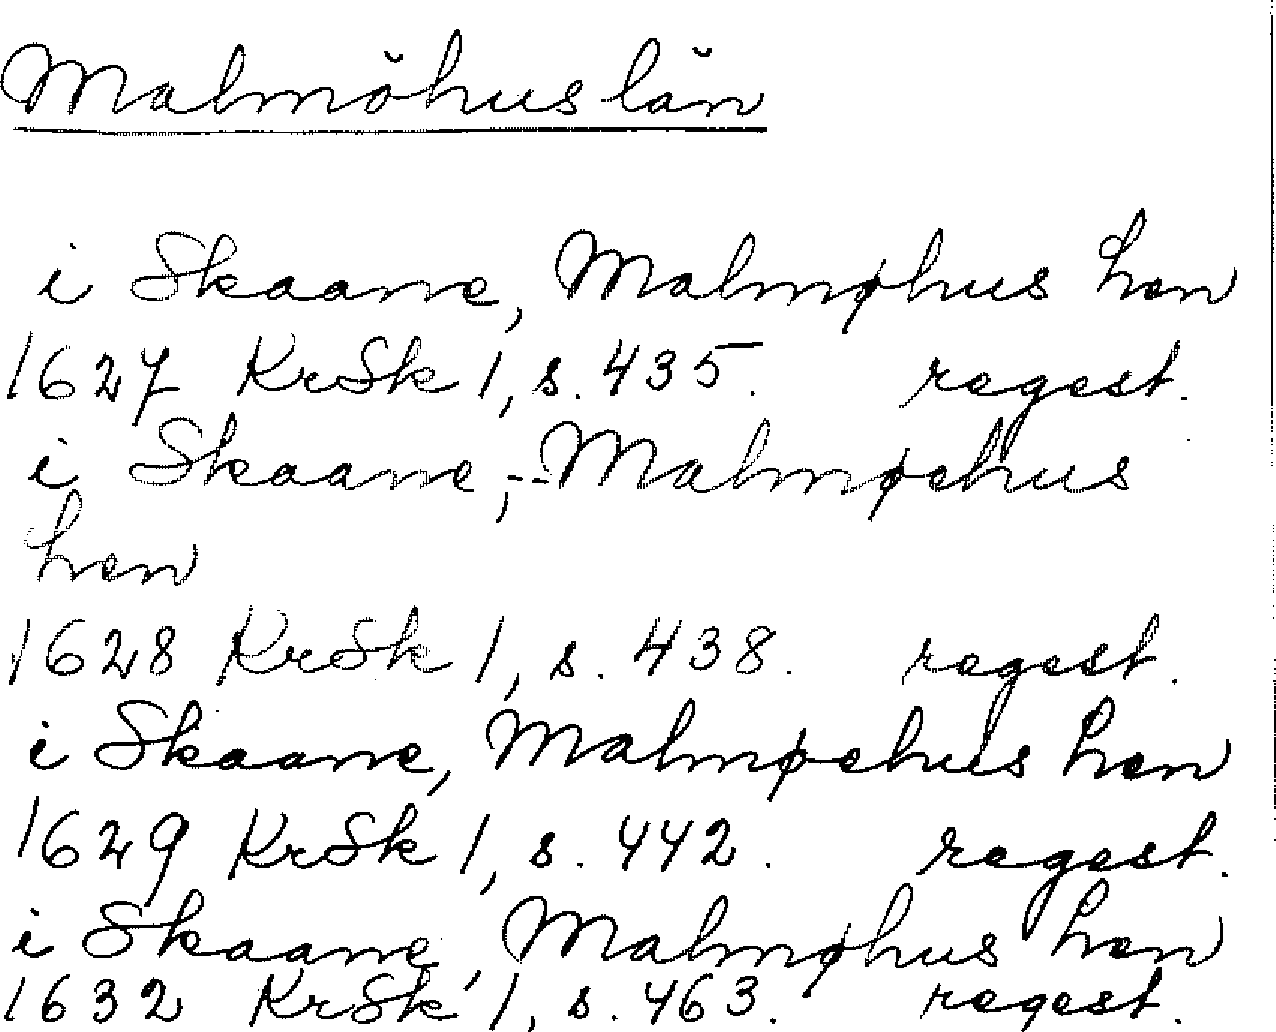 Malmöhus län
i Skaane, Malmøhus Len
1627 KrSk 1, s. 435. regest.
i Skaane, -- Malmøehus
Len
1628 KrSk 1, s. 438. regest.
i Skaane, Malmøehus Len
1629 KrSk 1, s. 442. regest.
i Skaane, Malmøhus Len
1632 KrSk 1, s. 463. regest.